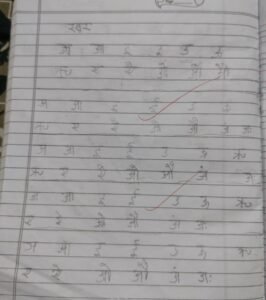 स्वर
अ आ इ ई उ ऊ
ऋ ए ऐ ओ औ
अ आ इ ई उ ऊ
ऋ ए ऐ ओ औ अं अः
अ आ इ ई उ ऊ ऋ
ऋ ए ऐ ओ औ अं अः
अ आ इ ई उ ऊ ऋ
ए ऐ ओ औ अं अः
अ आ इ ई उ ऊ ऋ
ए ऐ ओ औ अं अः